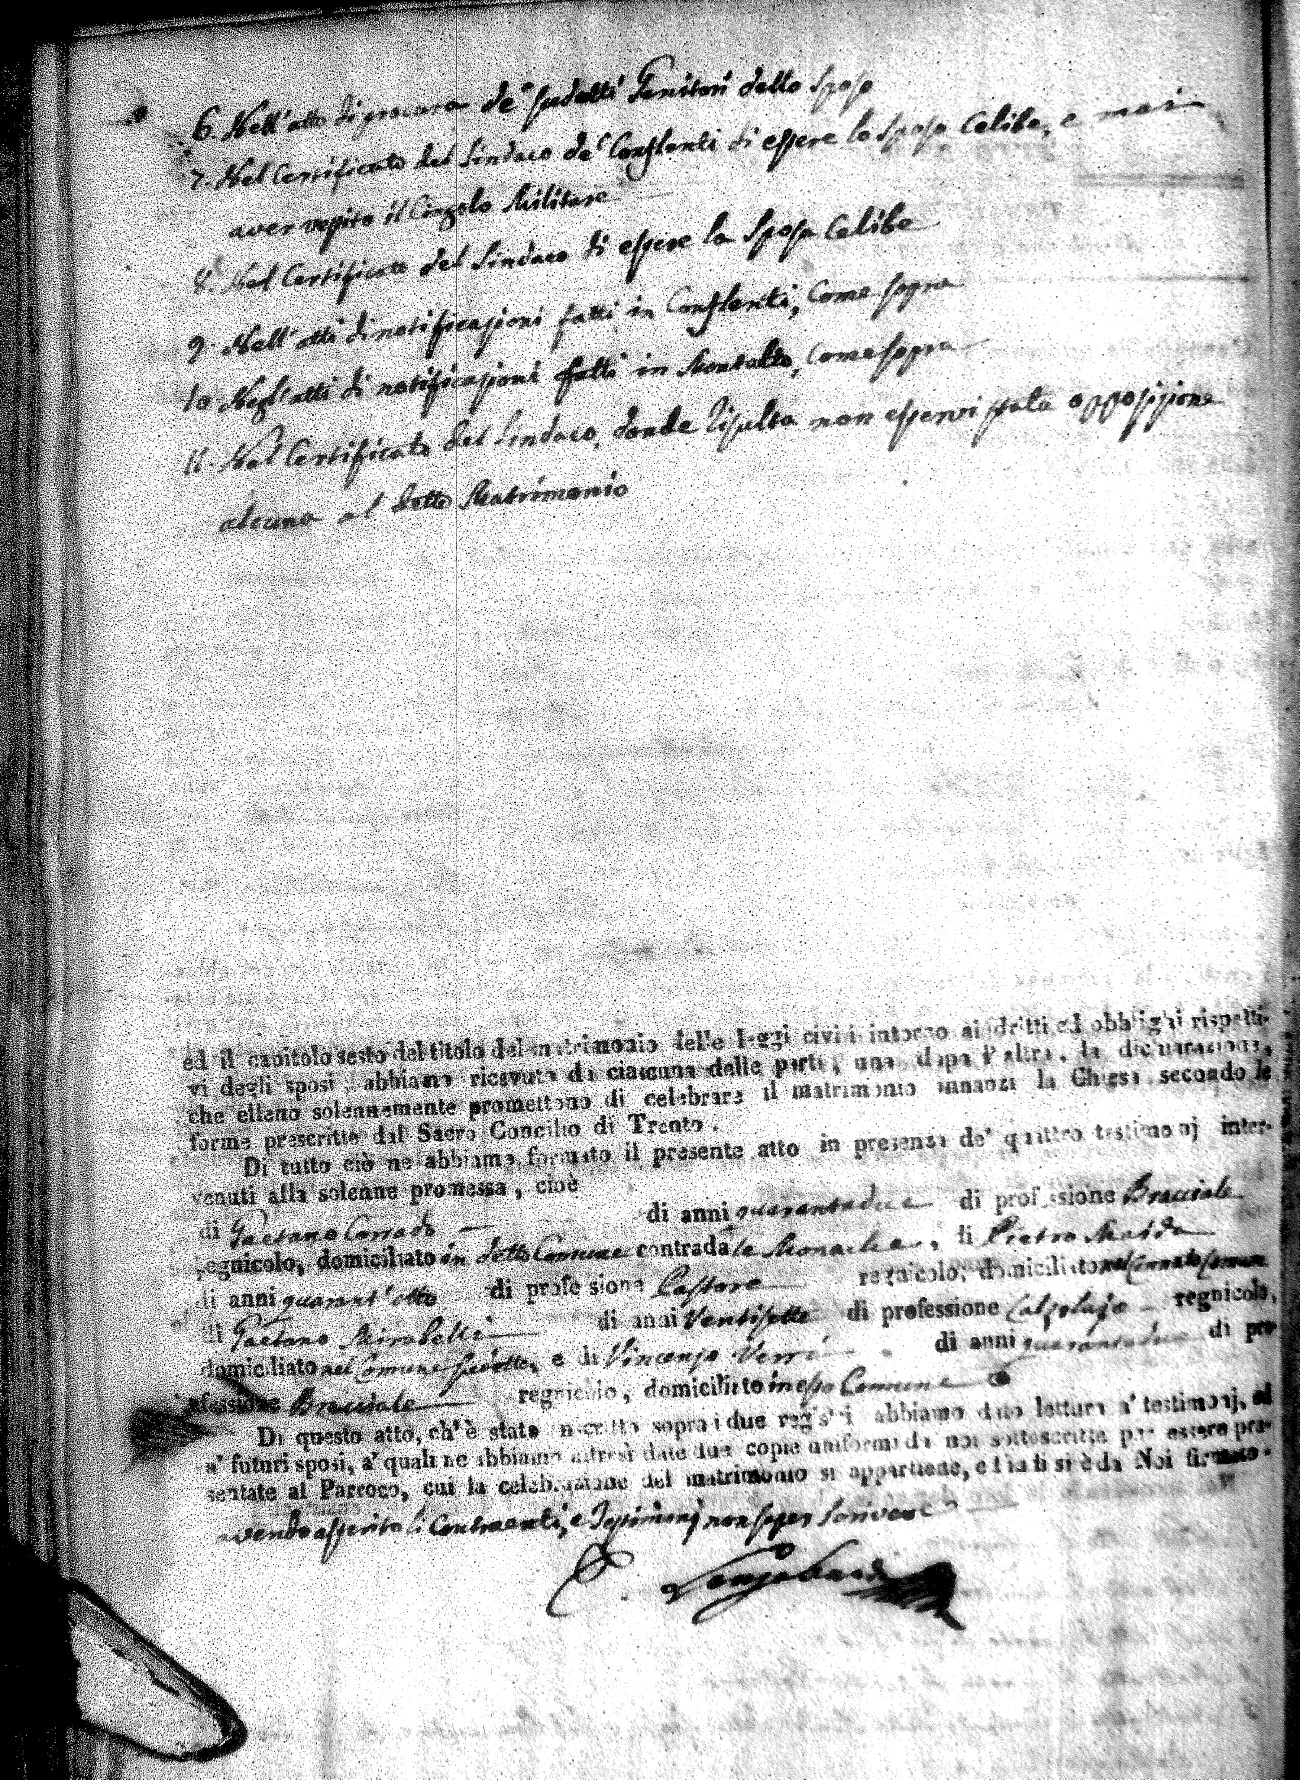 6. Nell'atto di procura de' sudetti Genitori dello Sposo
7. Nel Certificato del Sindaco de' Conflenti di essere lo Sposo Celibe, e mai
aver vestito il Cingolo Militare
8. Nel Certificato del Sindaco di essere la Sposa Celibe
9. Nell'atti di notificazioni fatti in Conflenti, Come sopra
10 Negl'atti di notificazioni fatti in Montalto, Come sopra
11. Nel Certificato del Sindaco, donde risulta non esservi stata opposizione
alcuna al detto Matrimonio
ed il capitolo sesto del titolo del matrimonio delle leggi civili intorno ai dritti ed obblighi rispetti-
vi degli sposi, abbiamo ricevuta da ciascuna delle parti, una dopo l'altra, la dichiarazione,
che elleno solennemente promettono di celebrare il matrimonio innanzi la Chiesa secondo le
forme prescritte dal Sacro Concilio di Trento.
Di tutto ciò ne abbiamo formato il presente atto in presenza de' quattro testimonj inter-
venuti alla solenne promessa, cioè
di Gaetano Corrado di anni quarantadue di professione Bracciale
regnicolo, domiciliato in detto Comune contrada le Monache, di Pietro
di anni quarant'otto di professione Pastore regnicolo, domiciliato
di Gaetano Mirabelli di anni Ventisette di professione Calzolajo regnicolo,
domiciliato nel Comune sudetto, e di Vincenzo Verri di anni quarantadue di pro-
fessione Bracciale regnicolo, domiciliato in esso Comune
Di questo atto, ch'è stato inscritto sopra i due registri abbiamo dato lettura a' testimonj, ed
a' futuri sposi, a' quali ne abbiamo altresì date due copie uniformi da noi sottoscritte per essere pre-
sentate al Parroco, cui la celebrazione del matrimonio si appartiene, e indi si è da Noi firmato
avendo asserito li Contraenti, e Testimonj non saper scrivere